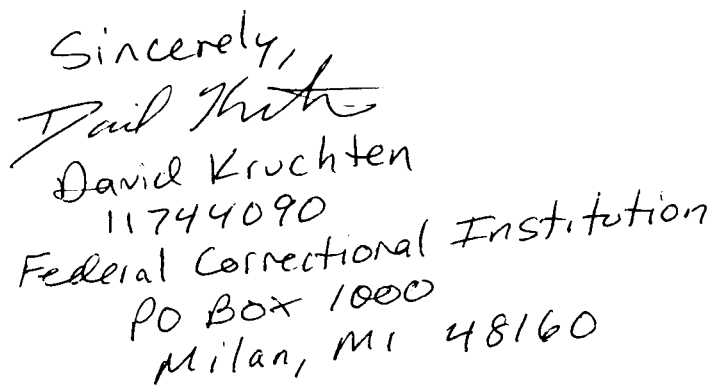 Sincerely,
David Kruchten
David Kruchten
11744090
Federal Correctional Institution
PO Box 1000
Milan, MI 48160